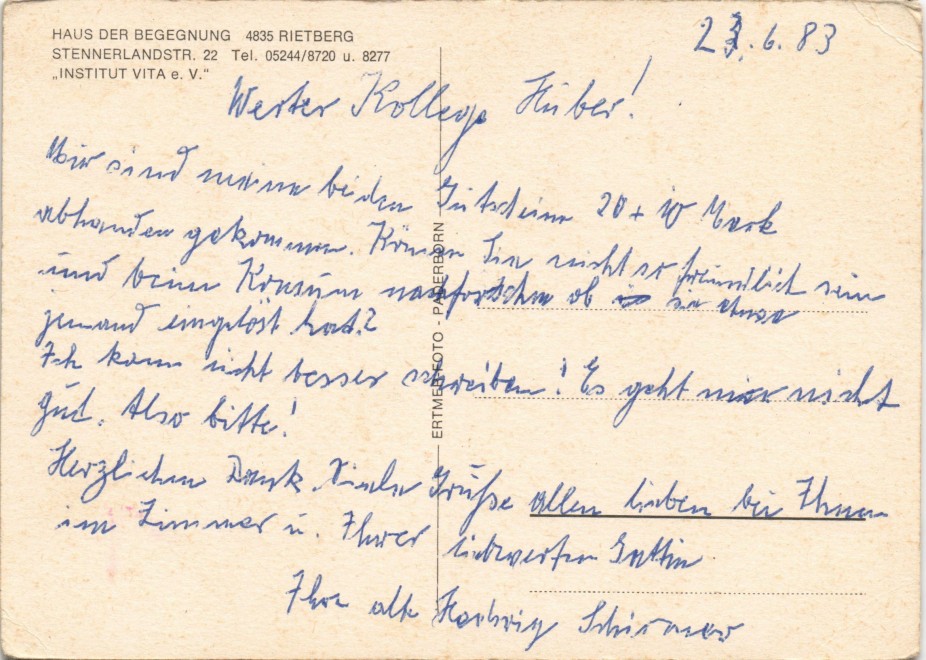 HAUS DER BEGEGNUNG 4835 RIETBERG
STENNERLANDSTR. 22 Tel. 05244/8720 u. 8277
„INSTITUT VITA e. V."
.6.83
Werter Kollege Huber!
Mir sind meine beiden Gutscheine 20 + 10 Mark
abhanden gekommen. Können Sie nicht so freundlich sein
und beim Konsum nachforschen ob so etwas
jemand eingelöst hat?
Ich kann nicht besser schreiben! Es geht mir nicht
gut. Also bitte!
Herzlichen Dank. Viele Grüße allen lieben bei Ihnen
im Zimmer u. Ihrer liebwerten Gattin
Ihre alte Hedwig Schirmer
ERTMER-FOTO - PADERBORN